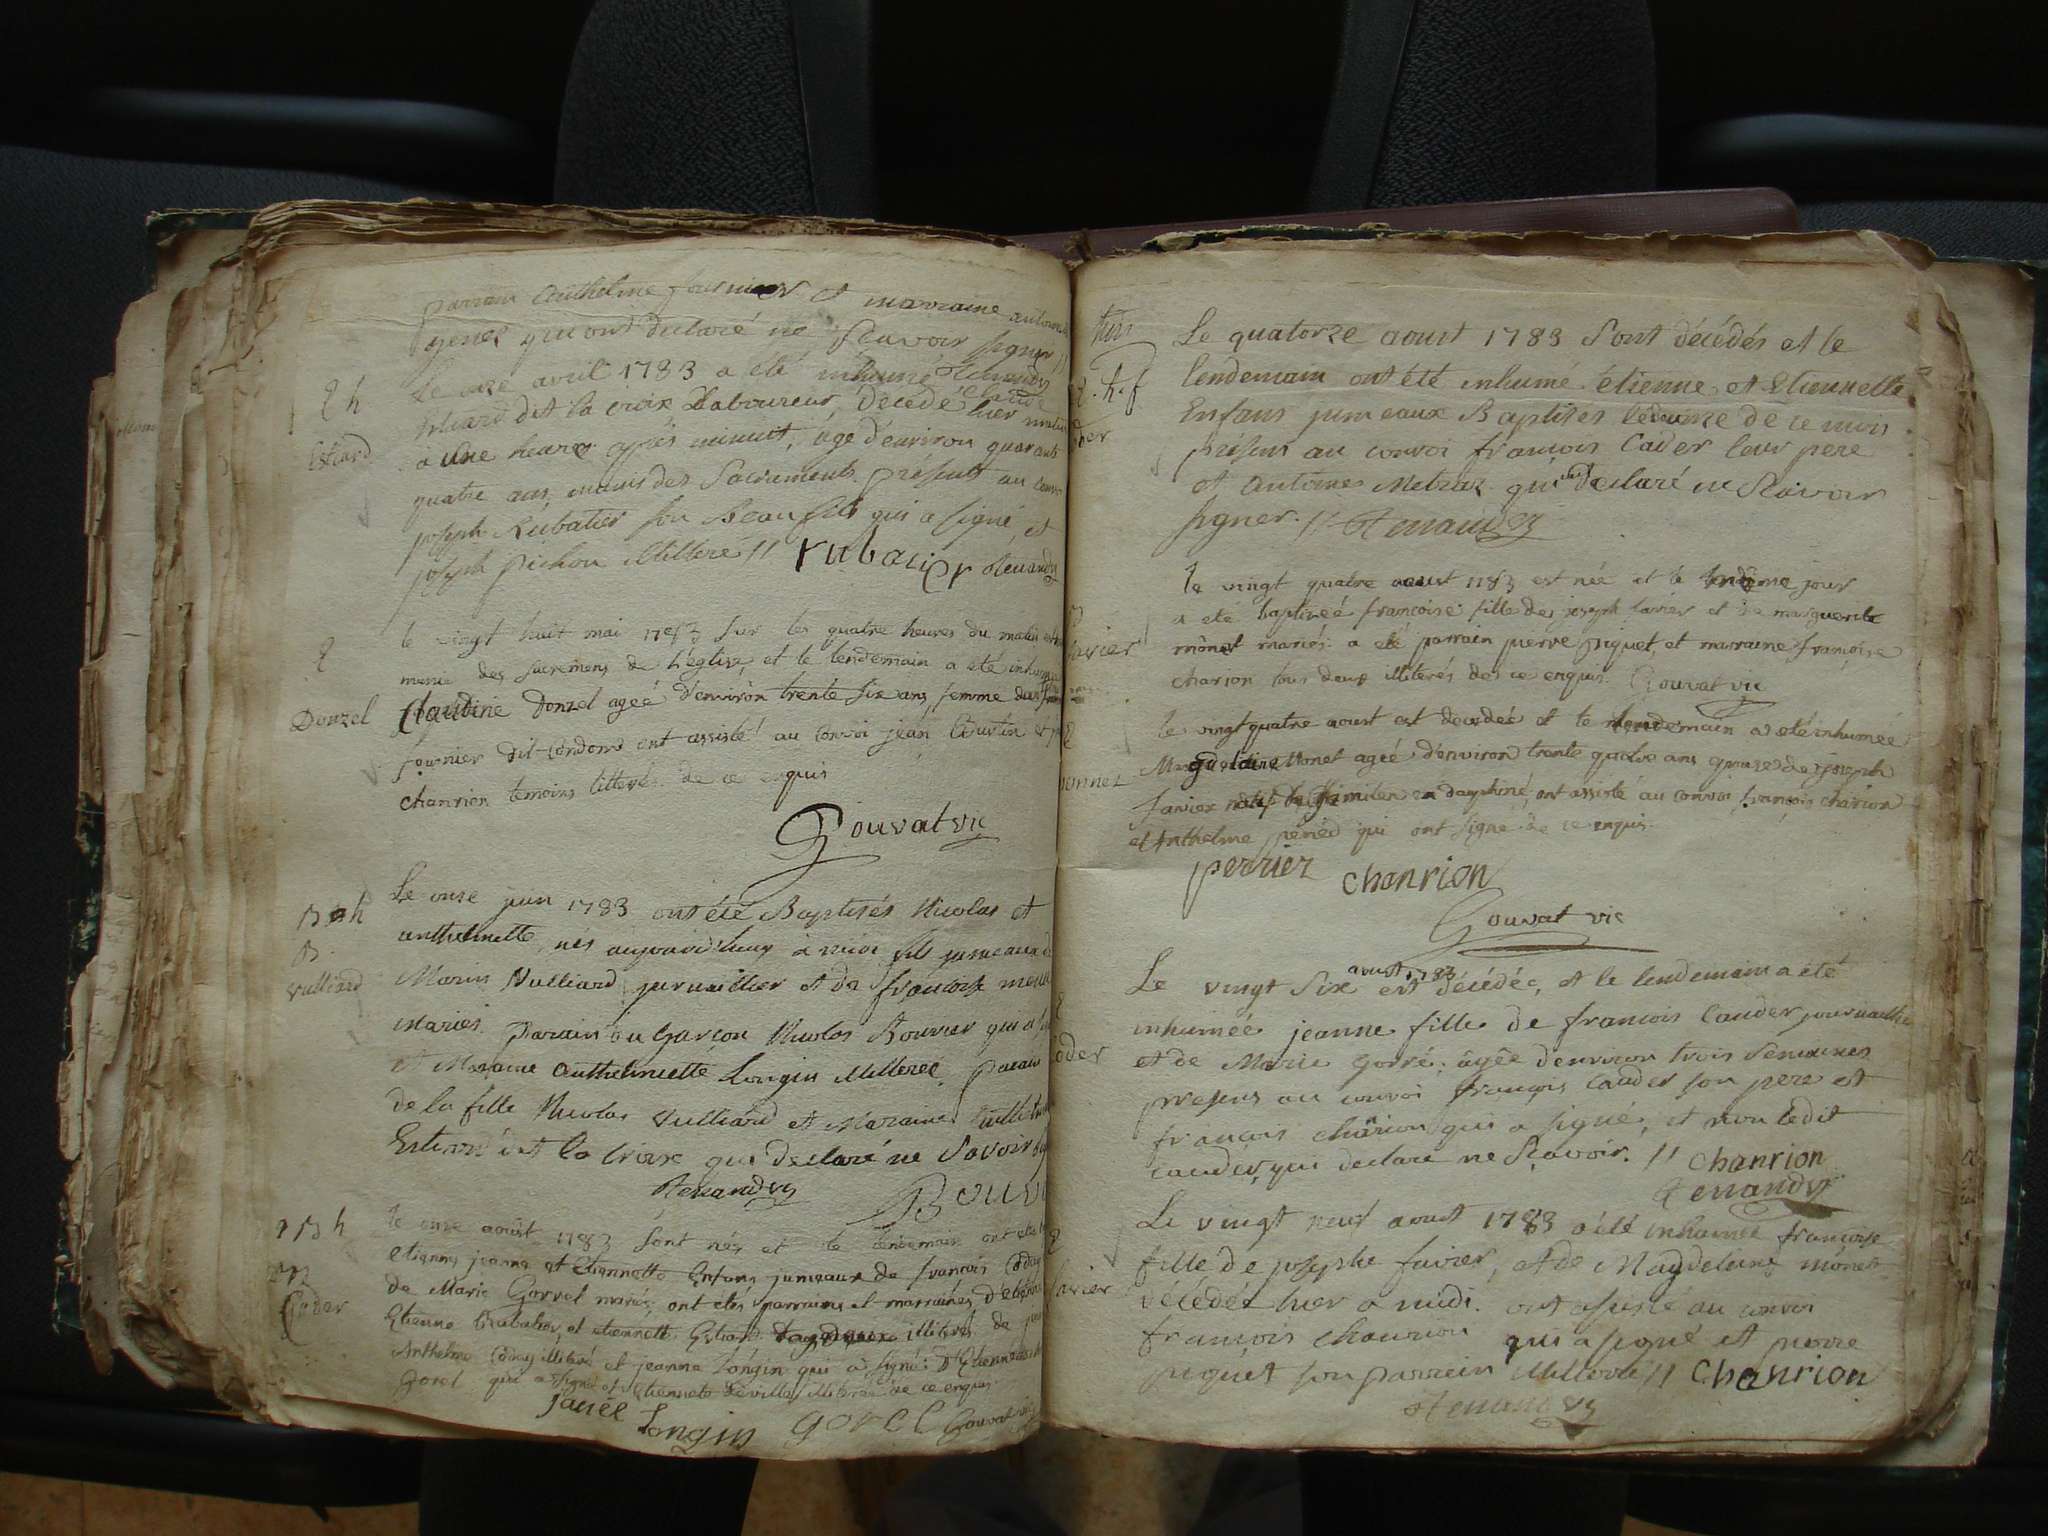 parrain Anthelme fournier et marraine
genet qui ont declaré ne scavoir signer //
Le onze avril 1783 a été inhumé Claude Renandy
2 h
Estiard dit la croix Laboureur, décédé hier matin
Estiard
à une heure après minuit, agé d'environ quarante
quatre ans, munis des Sacrements. présents au convoi
joseph Rubatier son Beau fils qui a signé, et
joseph pichon illiteré // rubatier Renandy
le vingt huit mai 1783 sur les quatre heures du matin
munie des sacremens de L'église, et le lendemain a été inhumée
Donzel
Claudine Donzel ageé d'environ trente six ans, femme de
fournier dit condom ont assisté au convoi jean Coustin et
chanrion temoins litterés de ce enquis
Gouvat vic
Le onze juin 1783 ont été Baptisés Nicolas et
B h
anthelmette, nés aujourd'huy à midi fils jumeaux de
B
Marin Vulliard journaillier et de françoise
Vulliard
Mariés. parain du Garçon Nicolas Bouvier qui a
et Maraine anthelmette Longin illiterée. parain
de la fille Nicolas Vulliard et Maraine
Estiard dit la Croix qui declaré ne Savoir
Renandy Bouvi
le onze août 1783 sont nés et le lendemain ont été
B h
etienne jeanne et etiennette Enfans jumeaux de francois Coder
de Marie Gorrel mariés, ont etés parrains et marraines, d'etienne
Coder
Etienne Rubatier, et etiennette Estiard illiterés de
Anthelme Coder illiteré et jeanne Longin qui a signé: d'Etiennette
Gorel qui a signé et etiennete Deville illiterée de ce enquis
Longin gorel Gouvat vic
Le quatorze aoust 1783 Sont décédés et le
lendemain ont été inhumé étienne, et Etiennette
h. f
Enfans jumeaux Baptisés le douze de ce mois
présens au convoi francois Cauder leur pere
et Antoine Metraz qui ont declaré ne Scavoir
signer. // Renandy
le vingt quatre aoust 1783 est née et le même jour
a eté baptiseé françoise fille de joseph favier et de marguerite
favier
mônet mariés. a eté parrain pierre piguet, et marraine françoise
charion tous deux illiterés de ce enquis. Gouvat vic
le vingt quatre aoust est decedeé et le lendemain a eté inhumée
Monet ageé d'environ trente quatre ans epouse de joseph
monnet
favier natif de en dauphiné, ont assisté au convoi françois charion
et Anthelme périer qui ont signe de ce enquis.
perrier chanrion
Gouvat vic
aoust 1783
Le vingt Six est décédée, et le lendemain a été
inhumée jeanne fille de francois Cauder journaillier
Coder
et de Marie gorré; âgée d'environ trois Semaines
presens au convoi françois Cauder son pere et
francois charion qui a signé, et non ledit
cauder, qui declare ne Scavoir. // chanrion
Renandy
Le vingt neuf aoust 1783 a été inhumée françoise
fille de josephe favier, et de Magdeleine mônet
favier
décédée hier a midi. ont assisté au convoi
françois chanrion qui a signé et pierre
piguet son parrein illiteré // Chanrion
Renandy